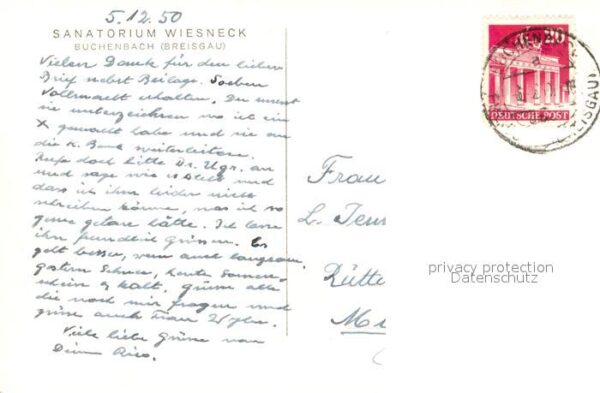 5.12.50
SANATORIUM WIESNECK
BUCHENBACH (BREISGAU)
Vielen Dank für den lieben
Brief nebst Beilage. Soeben
Vollmacht erhalten. Du musst
sie unterzeichnen wo ich ein
X gemacht habe und sie an
die K. Bank weiterleiten.
Rufe doch bitte Dr. an
und sage wie es steht und
dass ich ihm leider nicht
schreiben könne, was ich so
gerne getan hätte. Ich lasse
ihn freundlich grüssen. Es
geht besser, wenn auch langsam.
Gestern Schnee, heute Sonnen-
schein & kalt. Grüsse alle
die nach mir fragen und
grüsse auch Frau
Viele liebe Grüsse von
Deinem
20
DEUTSCHE POST
BREISGAU)
Frau
L.
Rütte
privacy protection
Datenschutz